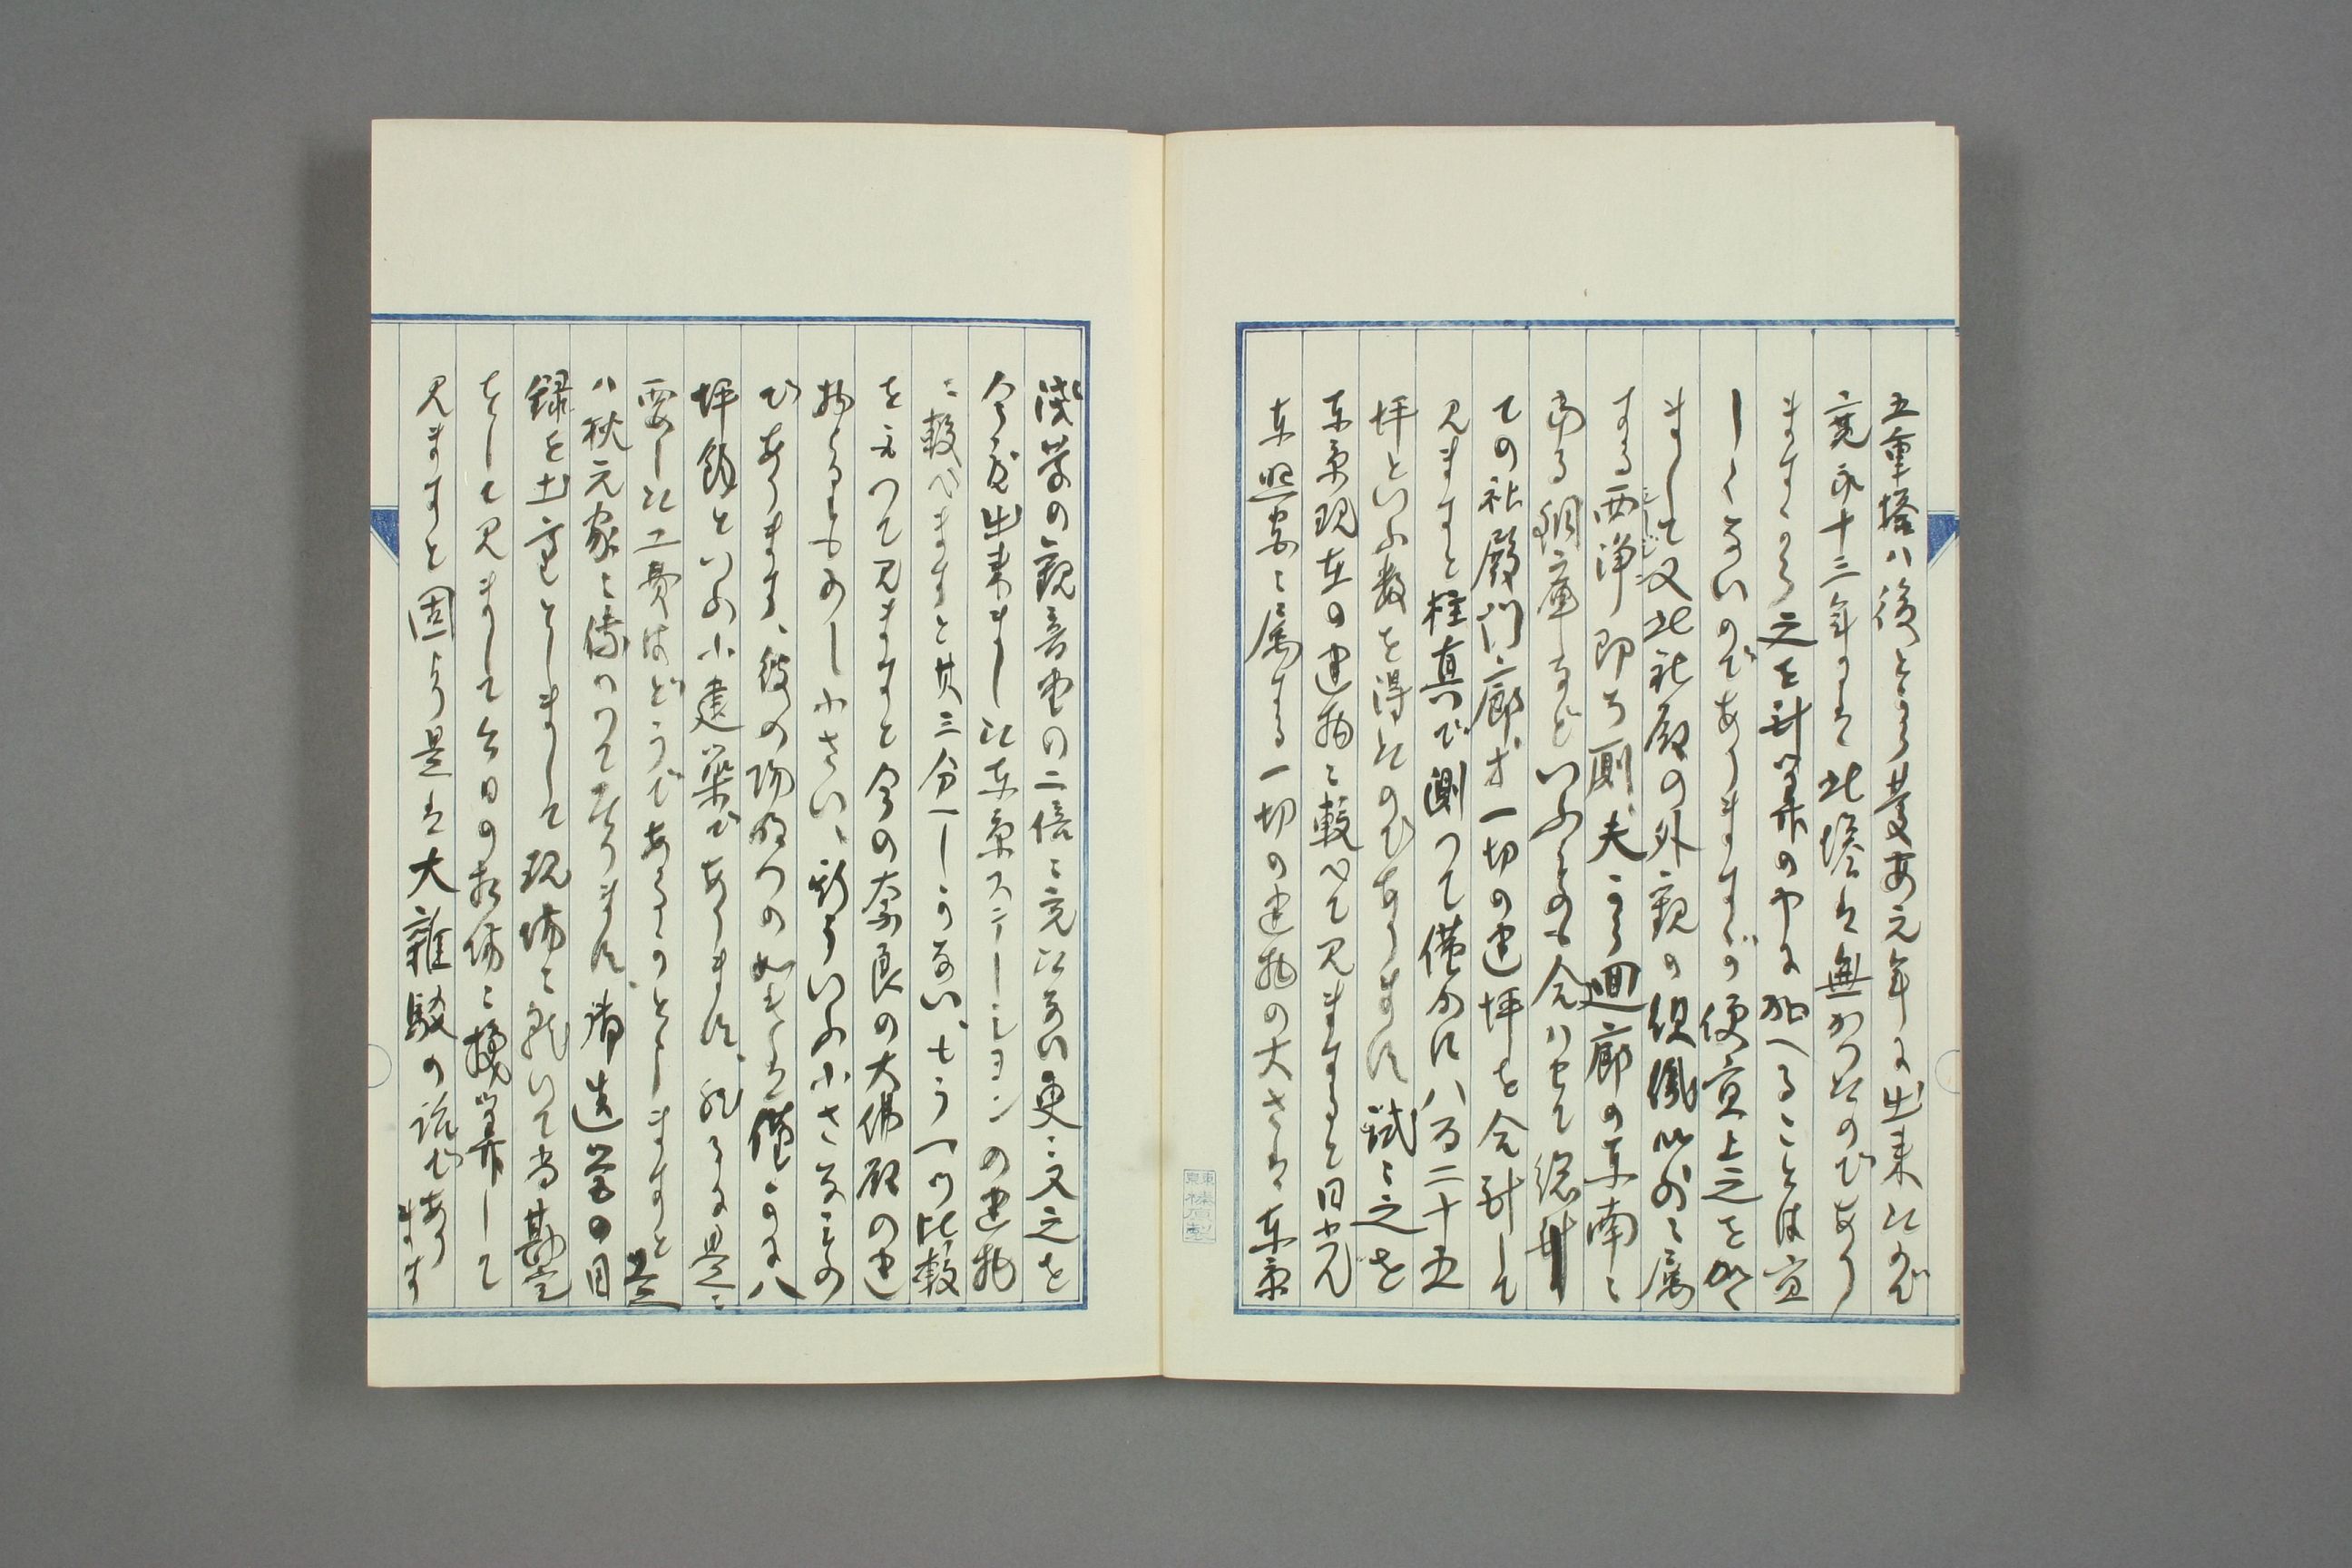 五重塔ハ後とより慶安元年に出来たので
寛永十三年には此塔は無かつたのであり
ますから之を計算の中に加へることは宜
しくないのでありますが便宜上之を加へ
まして又此社殿の外観の組織以外に属
する西浄即ち厠、夫から廻廊の東南に
ある銅庫などいふものも合ハせて総井
ての社殿門廊等一切の建坪を合計して
見ますと柱真で測つて僅かに八百二十五
坪といふ数を得たのであります、試に之を
東京現在の建物に較べて見ますると日光
東照宮に属する一切の建物の大さは東京
浅草の観音堂の二倍に充たない更に又之を
今度出来ました東京ステーションの建物
に較べますと其三分一しかない、もう一つ比較
を取つて見ますと今の奈良の大佛殿の建
物よりも少し小さい、斯ういふ小さなもの
であります、彼の陽明門の如きは僅かに八
坪餘といふ小建築であります、然るに是に
要した工費はどうであるかとしますと是
ハ秋元家に傳つて居ります、御造営の目
録を土臺としまして現場に就いて当勘定
をして見まして今日の相場に換算して
見ますと固より是は大雑駁の説であり
ます